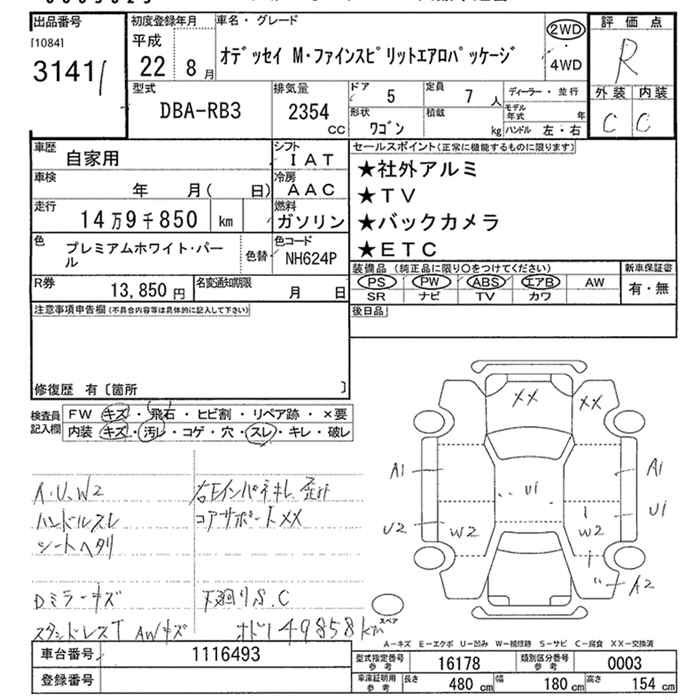 出品番号
[1084]
3141
初度登録年月
平成
22 8月
車名・グレード
オデッセイ M・ファインスピリットエアロパッケージ
2WD
・
4WD
評価点
R
外装 内装
C C
型式
DBA-RB3
排気量
2354
CC
ドア 5
定員 7人
形状 ワゴン
積載 kg
ディーラー・並行
モデル年式 年
ハンドル 左・右
車歴 自家用
シフト IAT
車検 年 月( 日)
冷房 AAC
走行 14万9千850 km
燃料 ガソリン
色 プレミアムホワイト・パール
色替
色コード NH624P
R券 13,850円
名変通知期限 月 日
セールスポイント(正常に機能するものに限ります)
★社外アルミ
★TV
★バックカメラ
★ETC
装備品 (純正品に限り○をつけてください)
PS PW ABS エアB AW
SR ナビ TV カワ
新車保証書
有・無
後日品
注意事項申告欄(不具合内容等は具体的に記入して下さい)
修復歴 有〔箇所 〕
検査員記入欄
FW キズ・飛石・ヒビ割・リペア跡・×要
内装 キズ・汚レ・コゲ・穴・スレ・キレ・破レ
A.U.W2
ハンドルスレ
シートヘタリ
Dミラーキズ
スタンドレスT AWキズ
右Fインパネキレ 歪
コアサポートXX
下廻りS.C
オド149858km
XX XX
A1 A1
U1 U1
U2 W2 W2
A2
スペア
A-キズ E-エクボ U-凹み W-補修跡 S-サビ C-腐食 XX-交換済
車台番号 1116493
登録番号
型式指定番号 参考 16178
類別区分番号 参考 0003
車庫証明用 参考 長さ 480 cm 幅 180 cm 高さ 154 cm